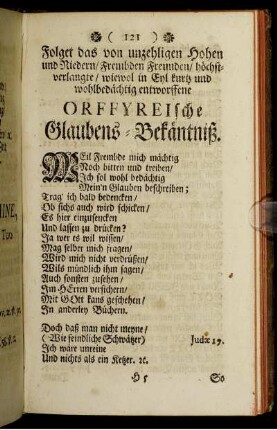 ( 121 )
Folget das von unzehligen Hohen
und Niedern/ Freunden/ höchst-
verlangte/ wiewol in Eyl kurtz und
wohlbedächtig entworffene
ORFFYREIsche
Glaubens-Bekäntniß.
Weil Frembde mich mächtig
Noch bitten und treiben/
Ich sol wohl bedächtig
Mein'n Glauben beschreiben;
Trag' ich bald bedencken/
Ob sichs auch wird schicken/
Es hier einzusencken
Und lassen zu drücken?
Ja wer es wil wissen/
Mag selber mich fragen/
Wird mich nicht verdrüßen/
Wils mündlich ihm sagen/
Auch sonsten zusehen/
Im HErren versichern/
Mit GOtt kans geschehen/
In anderley Büchern.
Doch daß man nicht meyne/
(Wie feindliche Schwätzer) Judæ 19.
Ich wäre unreine
Und nichts als ein Ketzer. ꝛc.
H 5 So
HINE,